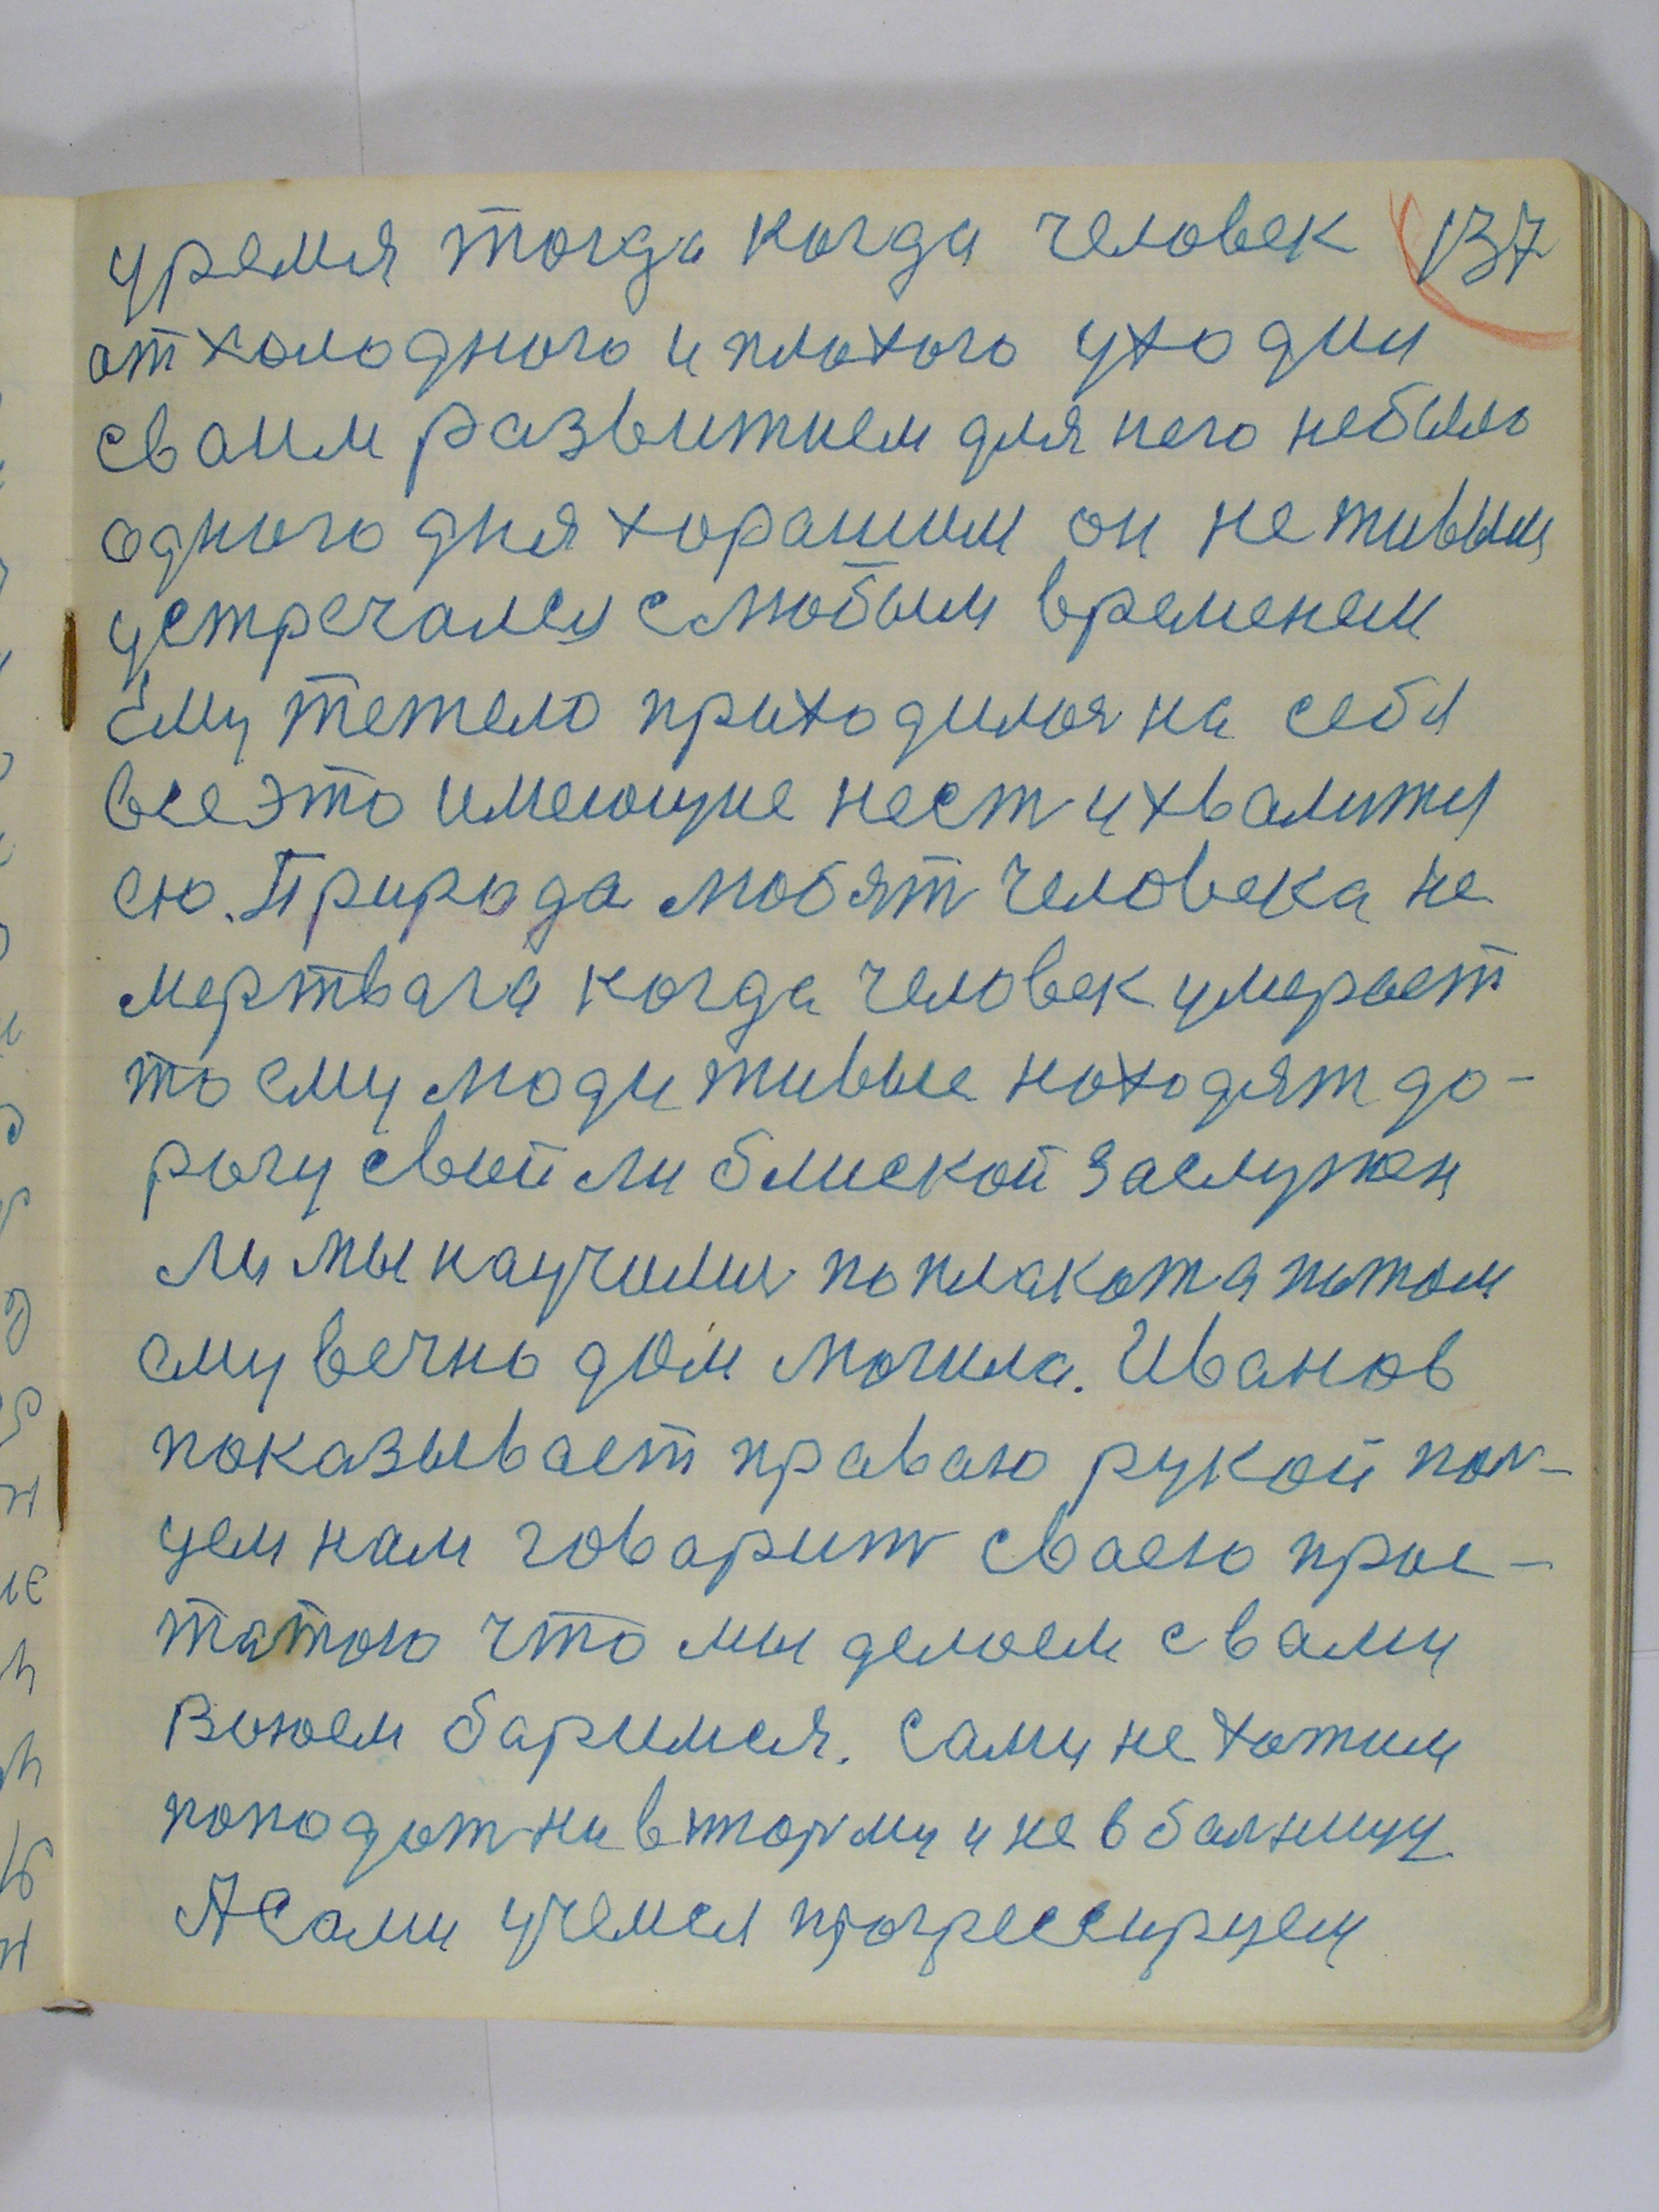 уремя тогда когда человек 137
от холодного и плохого уходил
сваим развитием для него небыло
одного дня хорашим он не живым
устречался слюбым временем
Ему тежело приходилося на себя
все это имеющие нести ухвалится
ею. Природа любят человека не
мертвага когда человек умерает
то ему люди живые находят до-
рогу свой ли блиской заслужен
ли мы научились поплакат а потом
ему вечно дом могила. Иванов
показывает праваю рукой пол-
цем нам говарит сваею прос-
татою что мы делаем с вами
Воюем баримся. Сами не хотим
пападат ни в тюрму и не в балницу
А Сами учемся прогрессируем